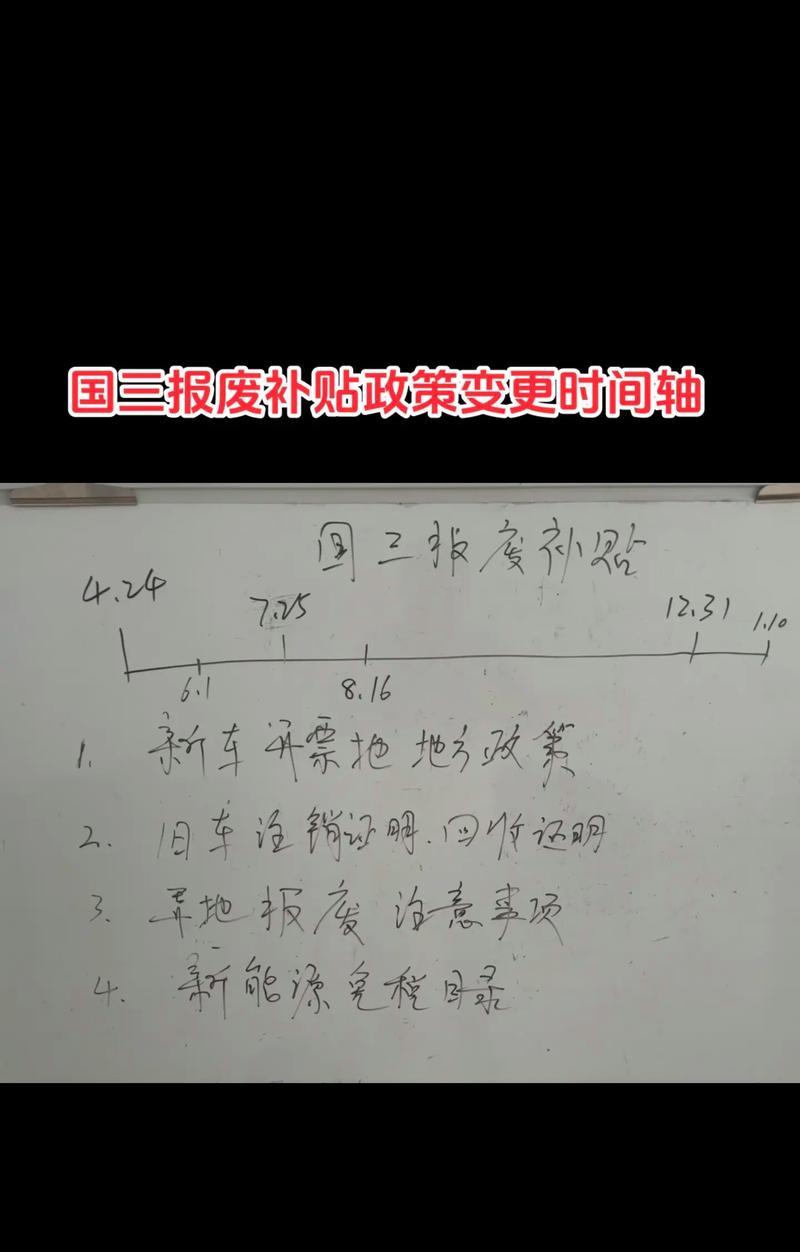 国三报废补贴政策变更时间轴
国三报废补贴
4.24 7.25 12.31 1.10
6.1 8.16
1. 新车开票地 地方政策
2. 旧车注销证明.回收证明
3. 异地报废 注意事项
4. 新能源免税目录